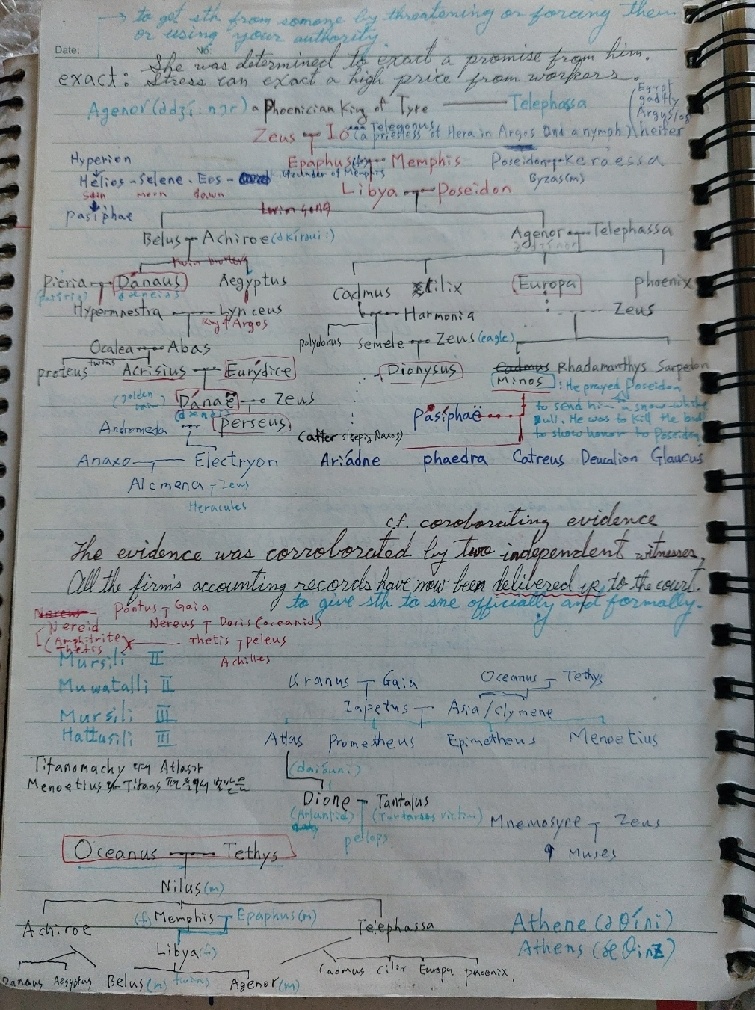 → to get sth from someone by threatening or forcing them
or using your authority
Date: No.
She was determined to exact a promise from him.
exact: Stress can exact a high price from workers.
Agenor a Phoenician King of Tyre — Telephassa
Zeus Io (a priestess of Hera in Argos and a nymph)
Epaphus Memphis Poseidon Keroessa
founder of Memphis Byzas(m)
Hyperion
Helios - Selene - Eos
sun moon dawn
Pasiphae
Libya Poseidon
twin song
Belus Achiroe Agenor Telephassa
twin brothers
Pieria Danaus Aegyptus Cadmus Cilix Europa phoenix
Hypermnestra Lynceus Harmonia Zeus
King of Argos
Ocalea Abas polydorus Semele Zeus (eagle)
proteus twins Acrisius Eurydice Dionysus Rhadamanthys Sarpedon
Minos : He prayed Poseidon
(golden rain) Danaë Zeus to send him a snow-white
bull. He was to kill the bull
to show honor to Poseidon
Andromeda perseus Pasiphaë
Anaxo Electryon Ariadne phaedra Catreus Deucalion Glaucus
Alcmena - Zeus
Heracules
cf. coroborating evidence
The evidence was corroborated by two independent witnesses.
All the firm's accounting records have now been delivered up to the court.
to give sth to sne officially and formally.
Nereus Pontus Gaia
Nereid Nereus Doris (oceanid)
(Amphitrite Thetis peleus
Thetis Achilles
Mursili II
Muwatalli II Uranus Gaia Oceanus Tethys
Mursili III Iapetus Asia/Clymene
Hattusili III Atlas Prometheus Epimetheus Menoetius
Titanomachy 때 Atlas와
Menoetius는 Titans
Dione Tantalus
(Tartaros victim)
pelops
Mnemosyne Zeus
9 Muses
Oceanus Tethys
Nilus (m)
Achiroe (f) Memphis Epaphus (m) Telephassa
Libya
Danaus Aegyptus Belus (m) twins Agenor (m) Cadmus cilix Europa phoenix
Athene (əθíni)
Athens